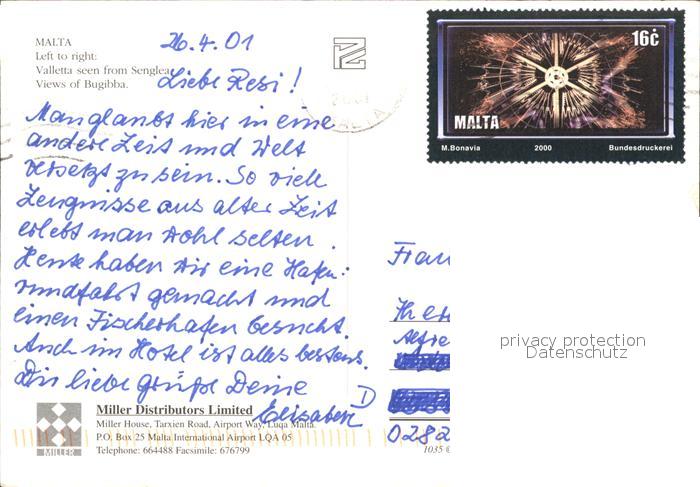 MALTA
Left to right:
Valletta seen from Senglea.
Views of Bugibba.
26.4.01
Liebe Resi!
Man glaubt hier in eine
andere Zeit und Welt
versetzt zu sein. So viele
Zeugnisse aus alter Zeit
erlebt man wohl selten.
Heute haben wir eine Hafen:
rundfahrt gemacht und
einen Fischerhafen besucht.
Auch im Hotel ist alles bestens.
Dir liebe Grüße Deine
Elisabeth
16c
MALTA
M.Bonavia 2000 Bundesdruckerei
MALTA
Frau
privacy protection
Datenschutz
D
0282
MILLER
Miller Distributors Limited
Miller House, Tarxien Road, Airport Way, Luqa Malta.
P.O. Box 25 Malta International Airport LQA 05
Telephone: 664488 Facsimile: 676799
1035